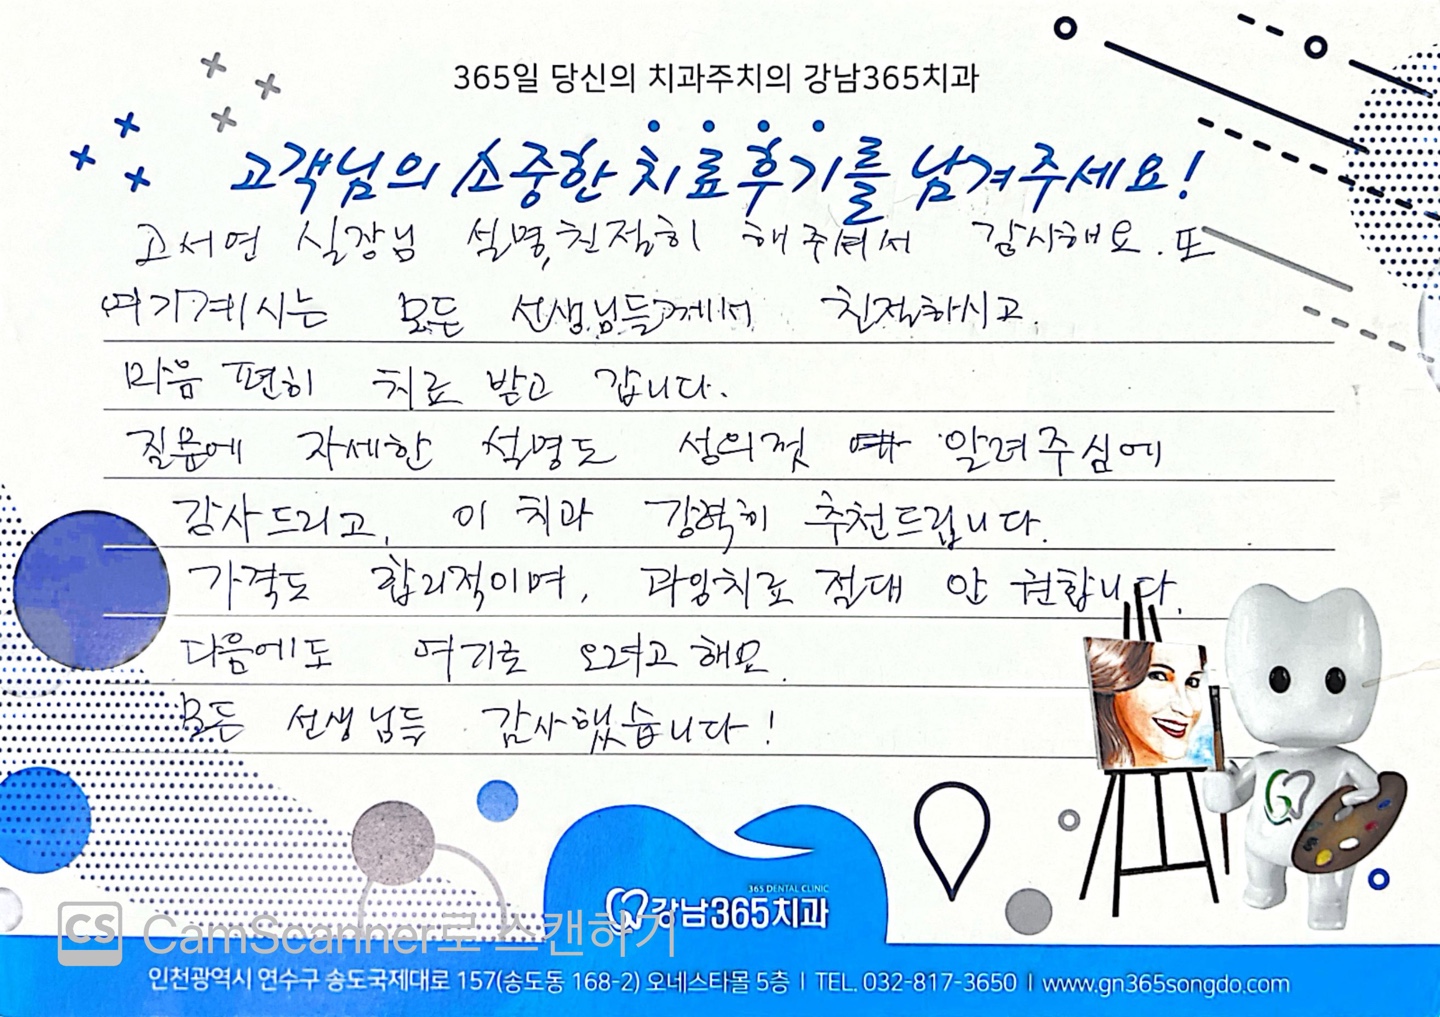 365일 당신의 치과주치의 강남365치과
고객님의 소중한 치료후기를 남겨주세요!
고서연 실장님 설명,친절히 해주셔서 감사해요. 또
여기계시는 모든 선생님들께서 친절하시고.
마음 편히 치료 받고 갑니다.
질문에 자세한 설명도 성의껏 알려주심에
감사드리고, 이 치과 강력히 추천드립니다.
가격도 합리적이며, 과잉치료 절대 안 권합니다.
다음에도 여기로 오려고 해요.
모든 선생님들 감사했습니다!
365 DENTAL CLINIC
강남365치과
CS CamScanner로 스캔하기
인천광역시 연수구 송도국제대로 157(송도동 168-2) 오네스타몰 5층 | TEL. 032-817-3650 | www.gn365songdo.com